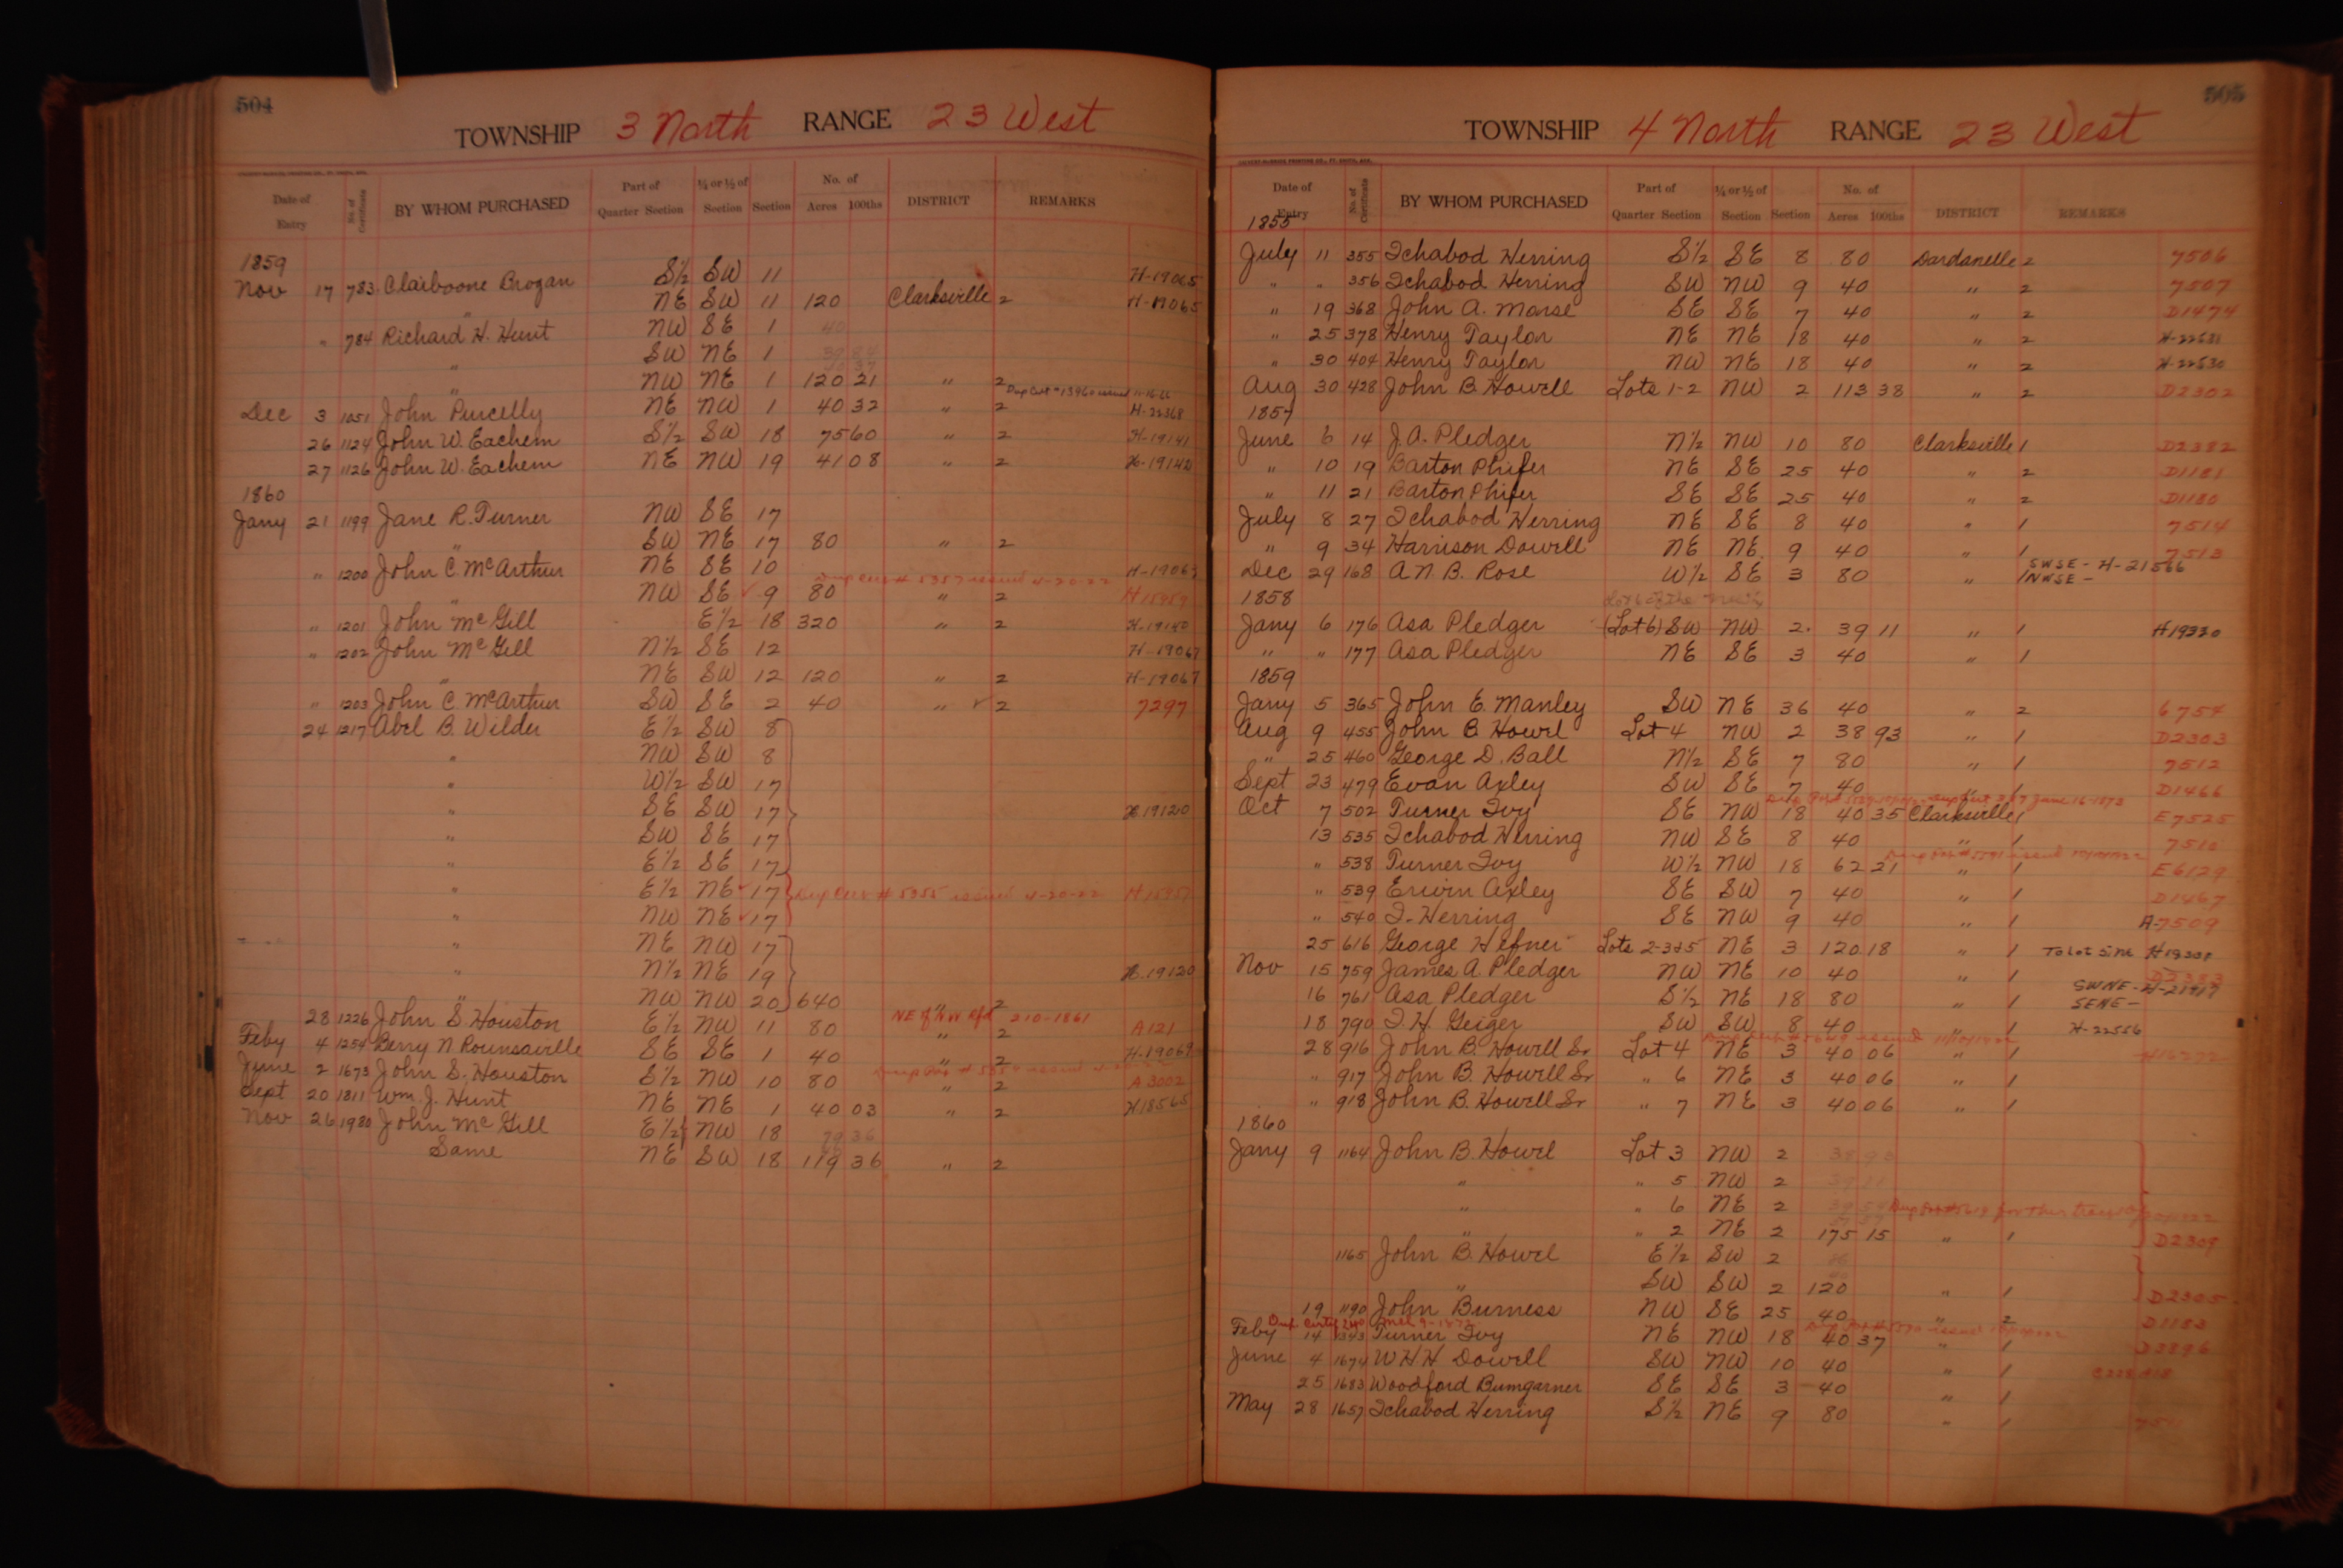 504
TOWNSHIP 3 North RANGE 23 West
Date of Entry No. of Certificate BY WHOM PURCHASED Part of Quarter Section ¼ or ½ of Section Section No. of Acres 100ths DISTRICT REMARKS
1859
Nov 17 783 Claiboone Brogan S½ SW 11 H-19065
" NE SW 11 120 Clarksville 2 H-19065
" 784 Richard H. Hunt NW SE 1 40
" SW NE 1
" NW NE 1 120 21 " 2
Dec 3 1051 John Purcelly NE NW 1 40 32 " 2 H-22368
26 1124 John W. Eachem S½ SW 18 75 60 " 2 H-19141
27 1126 John W. Eachem NE NW 19 41 08 " 2 H-19142
1860
Jany 21 1199 Jane R. Turner NW SE 17
" SW NE 17 80 " 2
" 1200 John C. McArthur NE SE 10 H-19063
Dup Cert # 5357 issued 4-20-22
" NW SE 9 80 " 2 H15959
" 1201 John McGill E½ 18 320 " 2 H-19140
" 1202 John McGill N½ SE 12 H-19067
" NE SW 12 120 " 2 H-19067
" 1203 John C. McArthur SW SE 2 40 " 2 7297
24 1217 Abel B. Wilder E½ SW 8
" NW SW 8
" W½ SW 17
" SE SW 17 H.19120
" SW SE 17
" E½ SE 17
" E½ NE 17 Dup Cert # 5355 issued 4-20-22 H15957
" NW NE 17
" NE NW 17
" N½ NE 19 H.19120
" NW NW 20 640 " 2
NE of NW Rfd 210-1861
28 1226 John S. Houston E½ NW 11 80 " 2 A121
Feby 4 1254 Berry N Rounsaville SE SE 1 40 " 2 H-19069
June 2 1673 John S. Houston S½ NW 10 80 " 2 A 3002
Sept 20 1811 Wm. J. Hunt NE NE 1 40 03 " 2 H18565
Nov 26 1980 John McGill E½ NW 18 79 36
Same NE SW 18 119 36 " 2
505
TOWNSHIP 4 North RANGE 23 West
Date of Entry No. of Certificate BY WHOM PURCHASED Part of Quarter Section ¼ or ½ of Section Section No. of Acres 100ths DISTRICT REMARKS
1855
July 11 355 Ichabod Herring S½ SE 8 80 Dardanelle 2 7506
" " 356 Ichabod Herring SW NW 9 40 " 2 7507
" 19 368 John A. Morse SE SE 7 40 " 2 D1474
" 25 378 Henry Taylor NE NE 18 40 " 2 H-22531
" 30 404 Henry Taylor NW NE 18 40 " 2 H-22530
Aug 30 428 John B. Howell Lots 1-2 NW 2 113 38 " 2 D2302
1857
June 6 14 J.A. Pledger N½ NW 10 80 Clarksville 1 D2382
" 10 19 Barton Phifer NE SE 25 40 " 2 D1181
" 11 21 Barton Phifer SE SE 25 40 " 2 D1180
July 8 27 Ichabod Herring NE SE 8 40 " 1 7514
" 9 34 Harrison Dowell NE NE 9 40 " 1 7513
Dec 29 168 A.N.B. Rose W½ SE 3 80 " 1 SWSE - H-21566
NWSE -
1858
Jany 6 176 Asa Pledger (Lot 6) SW NW 2 39 11 " 1 H19320
" " 177 Asa Pledger NE SE 3 40 " 1
1859
Jany 5 365 John E. Manley SW NE 36 40 " 2 6754
Aug 9 455 John B. Howel Lot 4 NW 2 38 93 " 1 D2303
" 25 460 George D. Ball N½ SE 7 80 " 1 7512
Sept 23 479 Evan Axley SW SE 7 40 " 1 D1466
Oct 7 502 Turner Ivy SE NW 18 40 35 Clarksville 1 E7525
13 535 Ichabod Herring NW SE 8 40 " 1 7510
" 538 Turner Ivy W½ NW 18 62 21 " 1 E6129
" 539 Erwin Axley SE SW 7 40 " 1 D1467
" 540 I. Herring SE NW 9 40 " 1 A-7509
25 616 George Hefner Lots 2-3&5 NE 3 120 18 " 1
Nov 15 759 James A. Pledger NW NE 10 40 " 1 D2383
16 761 Asa Pledger S½ NE 18 80 " 1 SWNE - H-21917
SENE -
18 790 I. H. Geiger SW SW 8 40 " 1 H-22556
28 916 John B. Howell Sr Lot 4 NE 3 40 06 " 1
" 917 John B. Howell Sr " 6 NE 3 40 06 " 1
" 918 John B. Howell Sr " 7 NE 3 40 06 " 1
1860
Jany 9 1164 John B. Howel Lot 3 NW 2 38 93
" " 5 NW 2 39 11
" " 6 NE 2
" " 2 NE 2 175 15 " 1 D2309
1165 John B. Howel E½ SW 2
" SW SW 2 120 " 1 D2305
19 1190 John Burness NW SE 25 40 " 2 D1183
Feby 14 1343 Turner Ivy NE NW 18 40 37 " 1 D3896
June 4 1674 W H H Dowell SW NW 10 40 " 1
25 1683 Woodford Bumgarner SE SE 3 40 " 1
May 28 1657 Ichabod Herring S½ NE 9 80 " 1